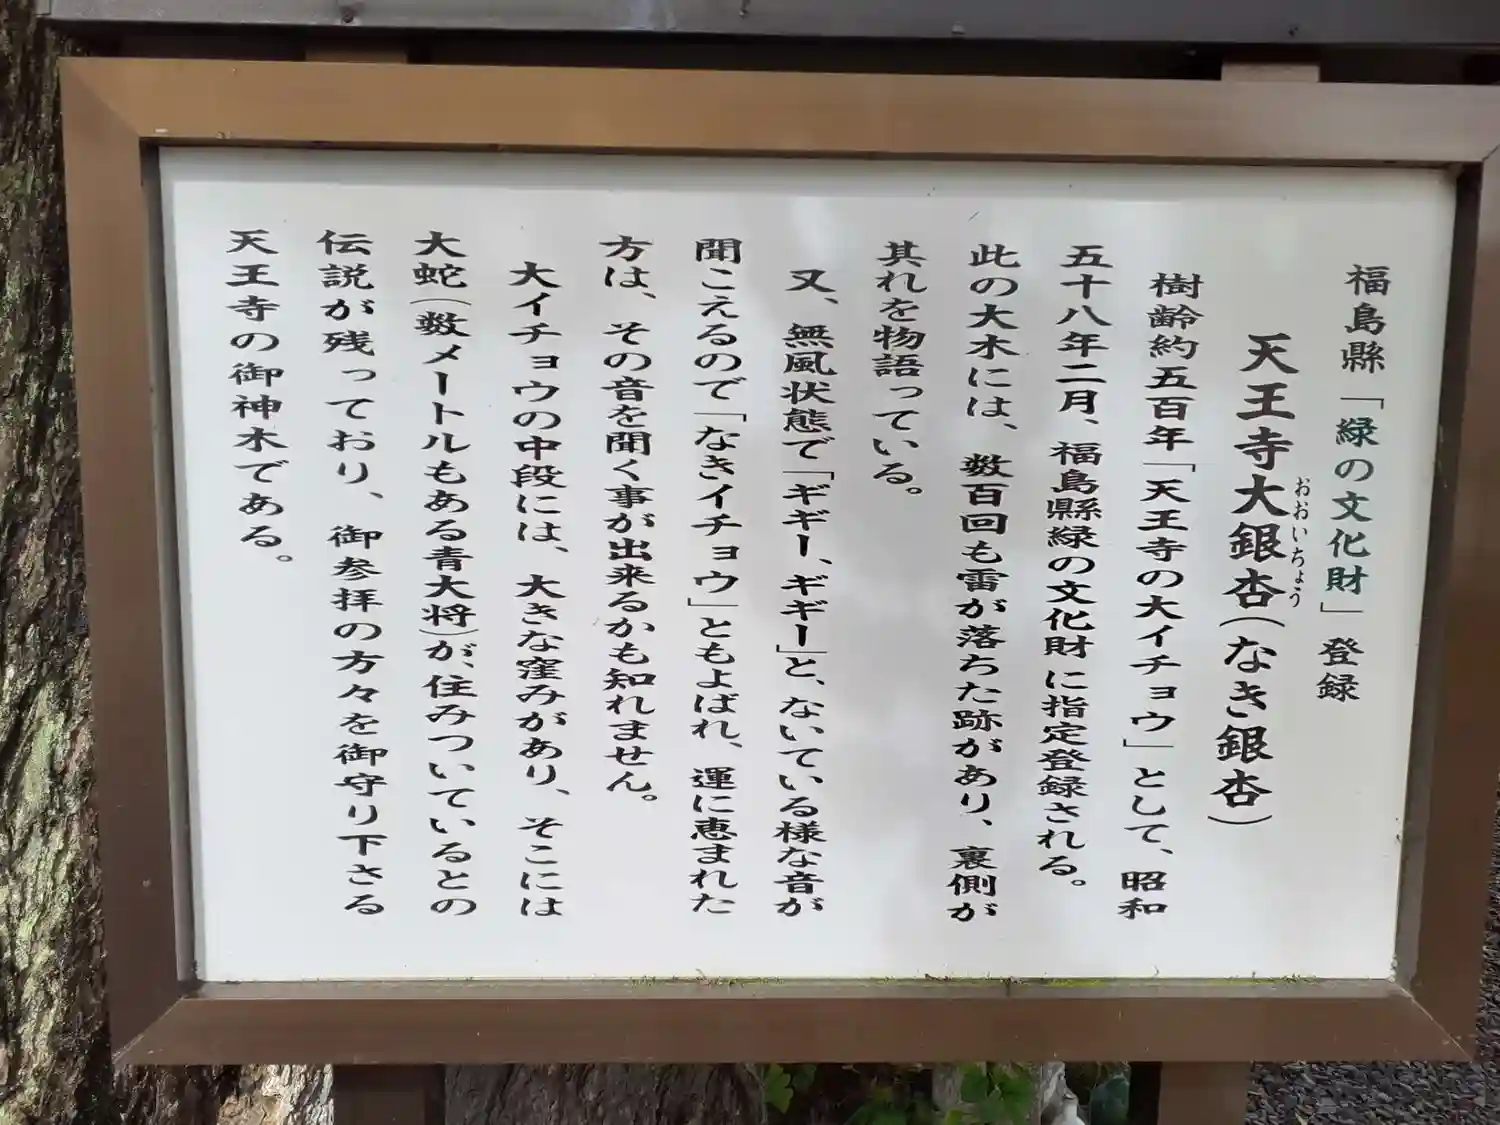 福島縣「緑の文化財」登録
天王寺大銀杏(なき銀杏)
おおいちょう
樹齢約五百年「天王寺の大イチョウ」として、昭和
五十八年二月、福島縣緑の文化財に指定登録される。
此の大木には、数百回も雷が落ちた跡があり、裏側が
其れを物語っている。
又、無風状態で「ギギー、ギギー」と、ないている様な音が
聞こえるので「なきイチョウ」ともよばれ、運に恵まれた
方は、その音を聞く事が出来るかも知れません。
大イチョウの中段には、大きな窪みがあり、そこには
大蛇(数メートルもある青大将)が、住みついているとの
伝説が残っており、御参拝の方々を御守り下さる
天王寺の御神木である。